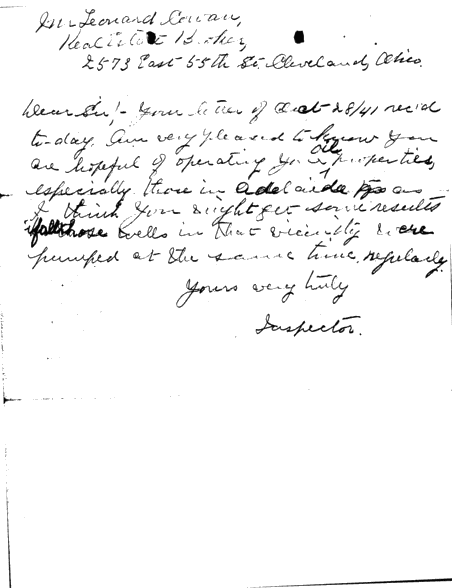 Mr Leonard Cowan,
Real Estate Broker,
2573 East 55th St. Cleveland, Ohio.
Dear Sir:- Your letter of Oct 28/41 rec'd
to-day. Am very pleased to know you
are hopeful of operating your oil properties,
especially those in Adelaide as
I think you might get some results
if all those wells in that vicinity were
pumped at the same time, regularly.
Yours very truly
Inspector.